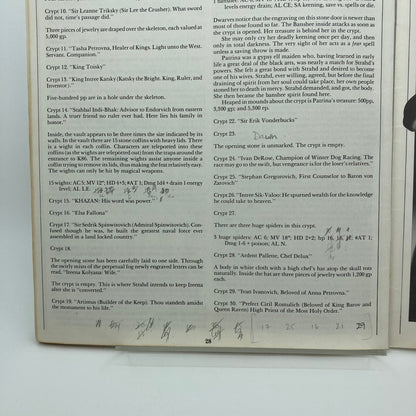 Crypt 10. "Sir Leanne Triksky (Sir Lee the Crusher). What sword
did not, time's passage did."
Three pieces of jewelry are draped over the skeleton, each valued at
5,000 gp.
Crypt 11. "Tasha Petrovna, Healer of Kings. Light unto the West.
Servant. Companion."
Crypt 12. "King Toisky"
Crypt 13. "King Intree Katsky (Katsky the Bright. King, Ruler, and
Inventor)."
Five-hundred pp are in a hole under the skeleton.
Crypt 14. "Stahbal Indi-Bhak: Advisor to Endorvich from eastern
lands. A truer friend no ruler ever had. Here lies his family in
honor."
Inside, the vault appears to be three times the size indicated by its
walls. In the vault there are 15 stone coffins with heavy lids. There
is a wight in each coffin. Characters are teleported into these
coffins (as the wights are teleported out) from the traps around the
entrance to K86. The remaining wights assist anyone inside a
coffin trying to remove its lids, thus making the feat relatively easy.
The wights can only be hit by magical weapons.
15 wights: AC 5; MV 12"; HD 4+3; #AT 1; Dmg 1d4 + drain 1 energy
level; AL LE
Crypt 15. "KHAZAN: His word was power."
Crypt 16. "Elsa Fallona"
Crypt 17. "Sir Sedrik Spinwitovich (Admiral Spinwitovich): Con-
fused though was, he built the greatest naval force ever
assembled in a land locked country."
Crypt 18.
The opening stone has been carefully laid to one side. Through
the swirly mists of the perpetual fog newly engraved letters can be
read, "Ireena Kolyana: Wife."
The crypt is empty. This is where Strahd intends to keep Ireena
after she is "converted."
Crypt 19. "Artimus (Builder of the Keep). Thou standeth amidst
the monument to his life."
levels energy drain; AL CE; SA kerning, save vs. spells or die.
Dwarves notice that the engraving on this stone door is newer than
most of those found so far. The Banshee inside attacks as soon as
the crypt is opened. Her treasure is behind her in the crypt.
She may only cry her deadly keening once per day, and then
only in total darkness. The very sight of her acts as a fear spell
unless a saving throw is made.
Patrina was a gypsy elf maiden who, having learned in early
life a great deal of the black arts, was nearly a match for Strahd's
powers. She felt a great bond with Strahd and desired to become
one of his wives. Strahd, ever willing, agreed, but before the final
draining of spirit from her soul could take place, her own people
stoned her to death in mercy. Strahd demanded, and got, the body.
She then became the banshee spirit found here.
Heaped in mounds about the crypt is Patrina's treasure: 500pp,
3,100 gp; and 5,500 pp.
Crypt 22. "Sir Erik Vonderbucks"
Crypt 23.
The opening stone is unmarked. The crypt is empty.
Crypt 24. "Ivan DeRose, Champion of Winter Dog Racing. The
race may go to the swift, but vengeance is for the loser's relatives."
Crypt 25. "Stephan Gregorovich, First Counselor to Baron von
Zarovich"
Crypt 26. "Intree Sik-Valoo: He spurned wealth for the knowledge
he could take to heaven.
Crypt 27.
There are three huge spiders in this crypt.
3 huge spiders: AC 6; MV 18"; HD 2+2; hp 16, 16, 18; #AT 1;
Dmg 1-6 + poison; AL N.
Crypt 28. "Ardent Pallette, Chef Delux"
A body in white cloth with a high chef's hat atop the skull rots
naturally. Inside the hat are three pieces of jewelry worth 1,200 gp
each.
Crypt 29. "Ivan Ivanovich, Beloved of Anna Petrovna."
Crypt 30. "Prefect Ciril Romulich (Beloved of King Barov and
Queen Raven) High Priest of the Most Holy Order."
21 29
28